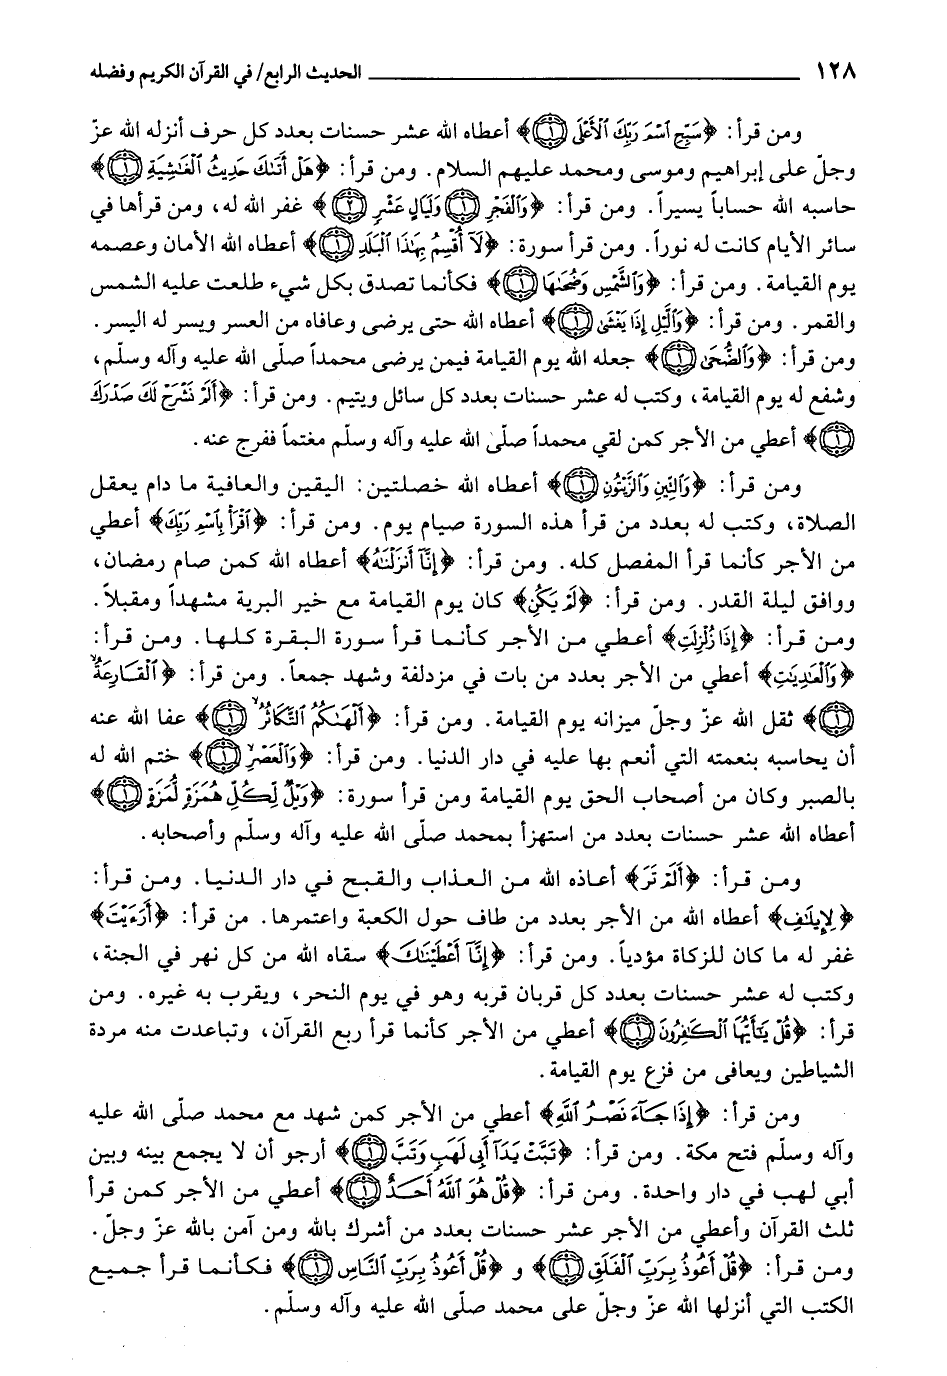 ١٢٨ ــــــــــــــــــــ الحديث الرابع/ في القرآن الكريم وفضله
ومن قرأ: ﴿سَبِّحِ ٱسْمَ رَبِّكَ ٱلْأَعْلَى ﴿١﴾﴾ أعطاه الله عشر حسنات بعدد كل حرف أنزله الله عزّ
وجلّ على إبراهيم وموسى ومحمد عليهم السلام. ومن قرأ: ﴿هَلْ أَتَىٰكَ حَدِيثُ ٱلْغَٰشِيَةِ ﴿١﴾﴾
حاسبه الله حساباً يسيراً. ومن قرأ: ﴿وَٱلْفَجْرِ ﴿١﴾ وَلَيَالٍ عَشْرٍ ﴿٢﴾﴾ غفر الله له، ومن قرأها في
سائر الأيام كانت له نوراً. ومن قرأ سورة: ﴿لَآ أُقْسِمُ بِهَٰذَا ٱلْبَلَدِ ﴿١﴾﴾ أعطاه الله الأمان وعصمه
يوم القيامة. ومن قرأ: ﴿وَٱلشَّمْسِ وَضُحَىٰهَا ﴿١﴾﴾ فكأنما تصدق بكل شيء طلعت عليه الشمس
والقمر. ومن قرأ: ﴿وَٱلَّيْلِ إِذَا يَغْشَىٰ ﴿١﴾﴾ أعطاه الله حتى يرضى وعافاه من العسر ويسر له اليسر.
ومن قرأ: ﴿وَٱلضُّحَىٰ ﴿١﴾﴾ جعله الله يوم القيامة فيمن يرضى محمداً صلّى الله عليه وآله وسلّم،
وشفع له يوم القيامة، وكتب له عشر حسنات بعدد كل سائل ويتيم. ومن قرأ: ﴿أَلَمْ نَشْرَحْ لَكَ صَدْرَكَ
﴿١﴾﴾ أعطي من الأجر كمن لقي محمداً صلّى الله عليه وآله وسلّم مغتماً ففرج عنه.
ومن قرأ: ﴿وَٱلتِّينِ وَٱلزَّيْتُونِ ﴿١﴾﴾ أعطاه الله خصلتين: اليقين والعافية ما دام يعقل
الصلاة، وكتب له بعدد من قرأ هذه السورة صيام يوم. ومن قرأ: ﴿ٱقْرَأْ بِٱسْمِ رَبِّكَ﴾ أعطي
من الأجر كأنما قرأ المفصل كله. ومن قرأ: ﴿إِنَّآ أَنزَلْنَٰهُ﴾ أعطاه الله كمن صام رمضان،
ووافق ليلة القدر. ومن قرأ: ﴿لَمْ يَكُنِ﴾ كان يوم القيامة مع خير البرية مشهداً ومقبلاً.
ومن قرأ: ﴿إِذَا زُلْزِلَتِ﴾ أعطي من الأجر كأنما قرأ سورة البقرة كلها. ومن قرأ:
﴿وَٱلْعَٰدِيَٰتِ﴾ أعطي من الأجر بعدد من بات في مزدلفة وشهد جمعاً. ومن قرأ: ﴿ٱلْقَارِعَةُ
﴿١﴾﴾ ثقل الله عزّ وجلّ ميزانه يوم القيامة. ومن قرأ: ﴿أَلْهَىٰكُمُ ٱلتَّكَاثُرُ ﴿١﴾﴾ عفا الله عنه
أن يحاسبه بنعمته التي أنعم بها عليه في دار الدنيا. ومن قرأ: ﴿وَٱلْعَصْرِ ﴿١﴾﴾ ختم الله له
بالصبر وكان من أصحاب الحق يوم القيامة ومن قرأ سورة: ﴿وَيْلٌ لِّكُلِّ هُمَزَةٍ لُّمَزَةٍ ﴿١﴾﴾
أعطاه الله عشر حسنات بعدد من استهزأ بمحمد صلّى الله عليه وآله وسلّم وأصحابه.
ومن قرأ: ﴿أَلَمْ تَرَ﴾ أعاذه الله من العذاب والقبح في دار الدنيا. ومن قرأ:
﴿لِإِيلَٰفِ﴾ أعطاه الله من الأجر بعدد من طاف حول الكعبة واعتمرها. من قرأ: ﴿أَرَءَيْتَ﴾
غفر له ما كان للزكاة مؤدياً. ومن قرأ: ﴿إِنَّآ أَعْطَيْنَٰكَ﴾ سقاه الله من كل نهر في الجنة،
وكتب له عشر حسنات بعدد كل قربان قربه وهو في يوم النحر، ويقرب به غيره. ومن
قرأ: ﴿قُلْ يَٰٓأَيُّهَا ٱلْكَٰفِرُونَ ﴿١﴾﴾ أعطي من الأجر كأنما قرأ ربع القرآن، وتباعدت منه مردة
الشياطين ويعافى من فزع يوم القيامة.
ومن قرأ: ﴿إِذَا جَآءَ نَصْرُ ٱللَّهِ﴾ أعطي من الأجر كمن شهد مع محمد صلّى الله عليه
وآله وسلّم فتح مكة. ومن قرأ: ﴿تَبَّتْ يَدَآ أَبِى لَهَبٍ وَتَبَّ ﴿١﴾﴾ أرجو أن لا يجمع بينه وبين
أبي لهب في دار واحدة. ومن قرأ: ﴿قُلْ هُوَ ٱللَّهُ أَحَدٌ ﴿١﴾﴾ أعطي من الأجر كمن قرأ
ثلث القرآن وأعطي من الأجر عشر حسنات بعدد من أشرك بالله ومن آمن بالله عزّ وجلّ.
ومن قرأ: ﴿قُلْ أَعُوذُ بِرَبِّ ٱلْفَلَقِ ﴿١﴾﴾ و ﴿قُلْ أَعُوذُ بِرَبِّ ٱلنَّاسِ ﴿١﴾﴾ فكأنما قرأ جميع
الكتب التي أنزلها الله عزّ وجلّ على محمد صلّى الله عليه وآله وسلّم.